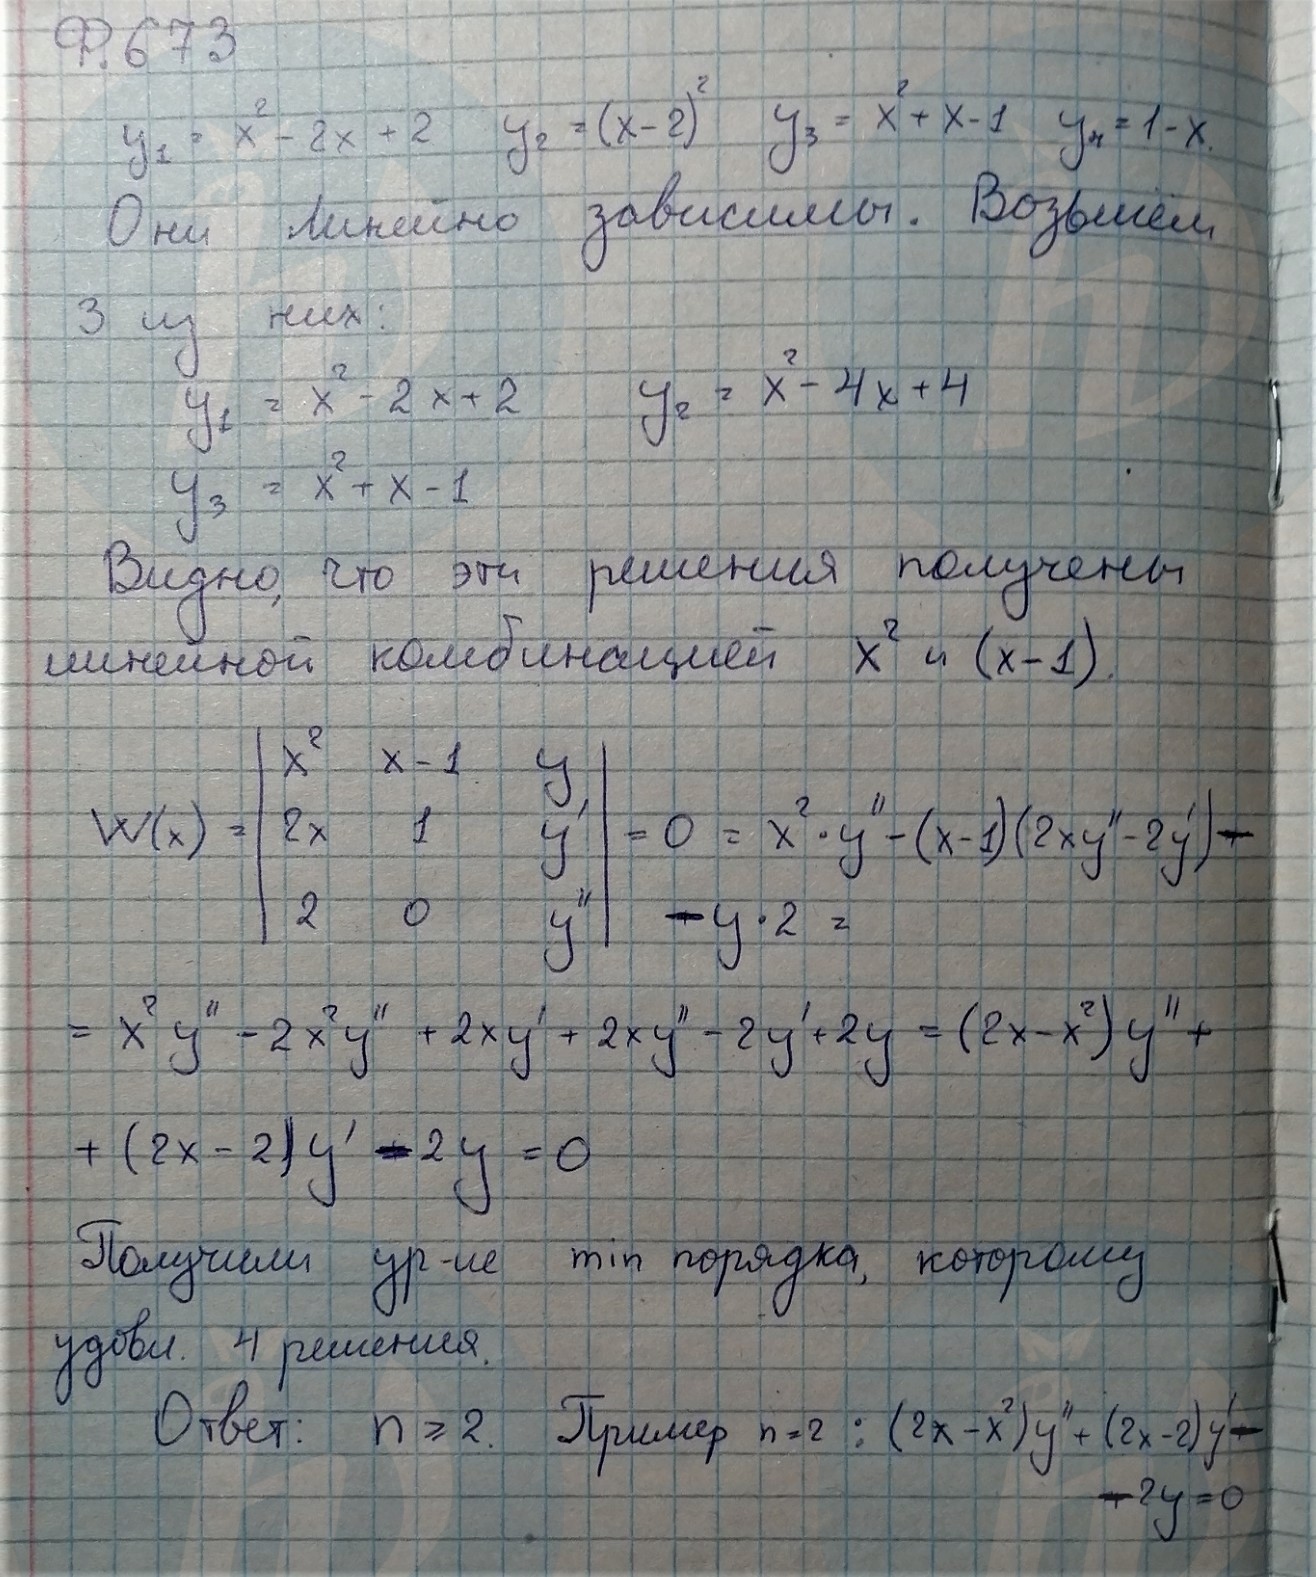 Ф.673
y₁ = x² - 2x + 2 y₂ = (x-2)² y₃ = x² + x - 1 y₄ = 1 - x.
Они линейно зависимы. Возьмём
3 из них:
y₁ = x² - 2x + 2 y₂ = x² - 4x + 4
y₃ = x² + x - 1
Видно, что эти решения получены
линейной комбинацией x² и (x-1).
x² x-1 y
W(x) = | 2x 1 y' | = 0 = x²·y'' - (x-1)(2xy'' - 2y') -
2 0 y'' - y·2 =
= x²y'' - 2x²y'' + 2xy' + 2xy'' - 2y' + 2y = (2x-x²)y'' +
+ (2x-2)y' - 2y = 0
Получили ур-ие min порядка, которому
удовл. 4 решения.
Ответ: n ≥ 2. Пример n=2 : (2x-x²)y'' + (2x-2)y' -
- 2y = 0